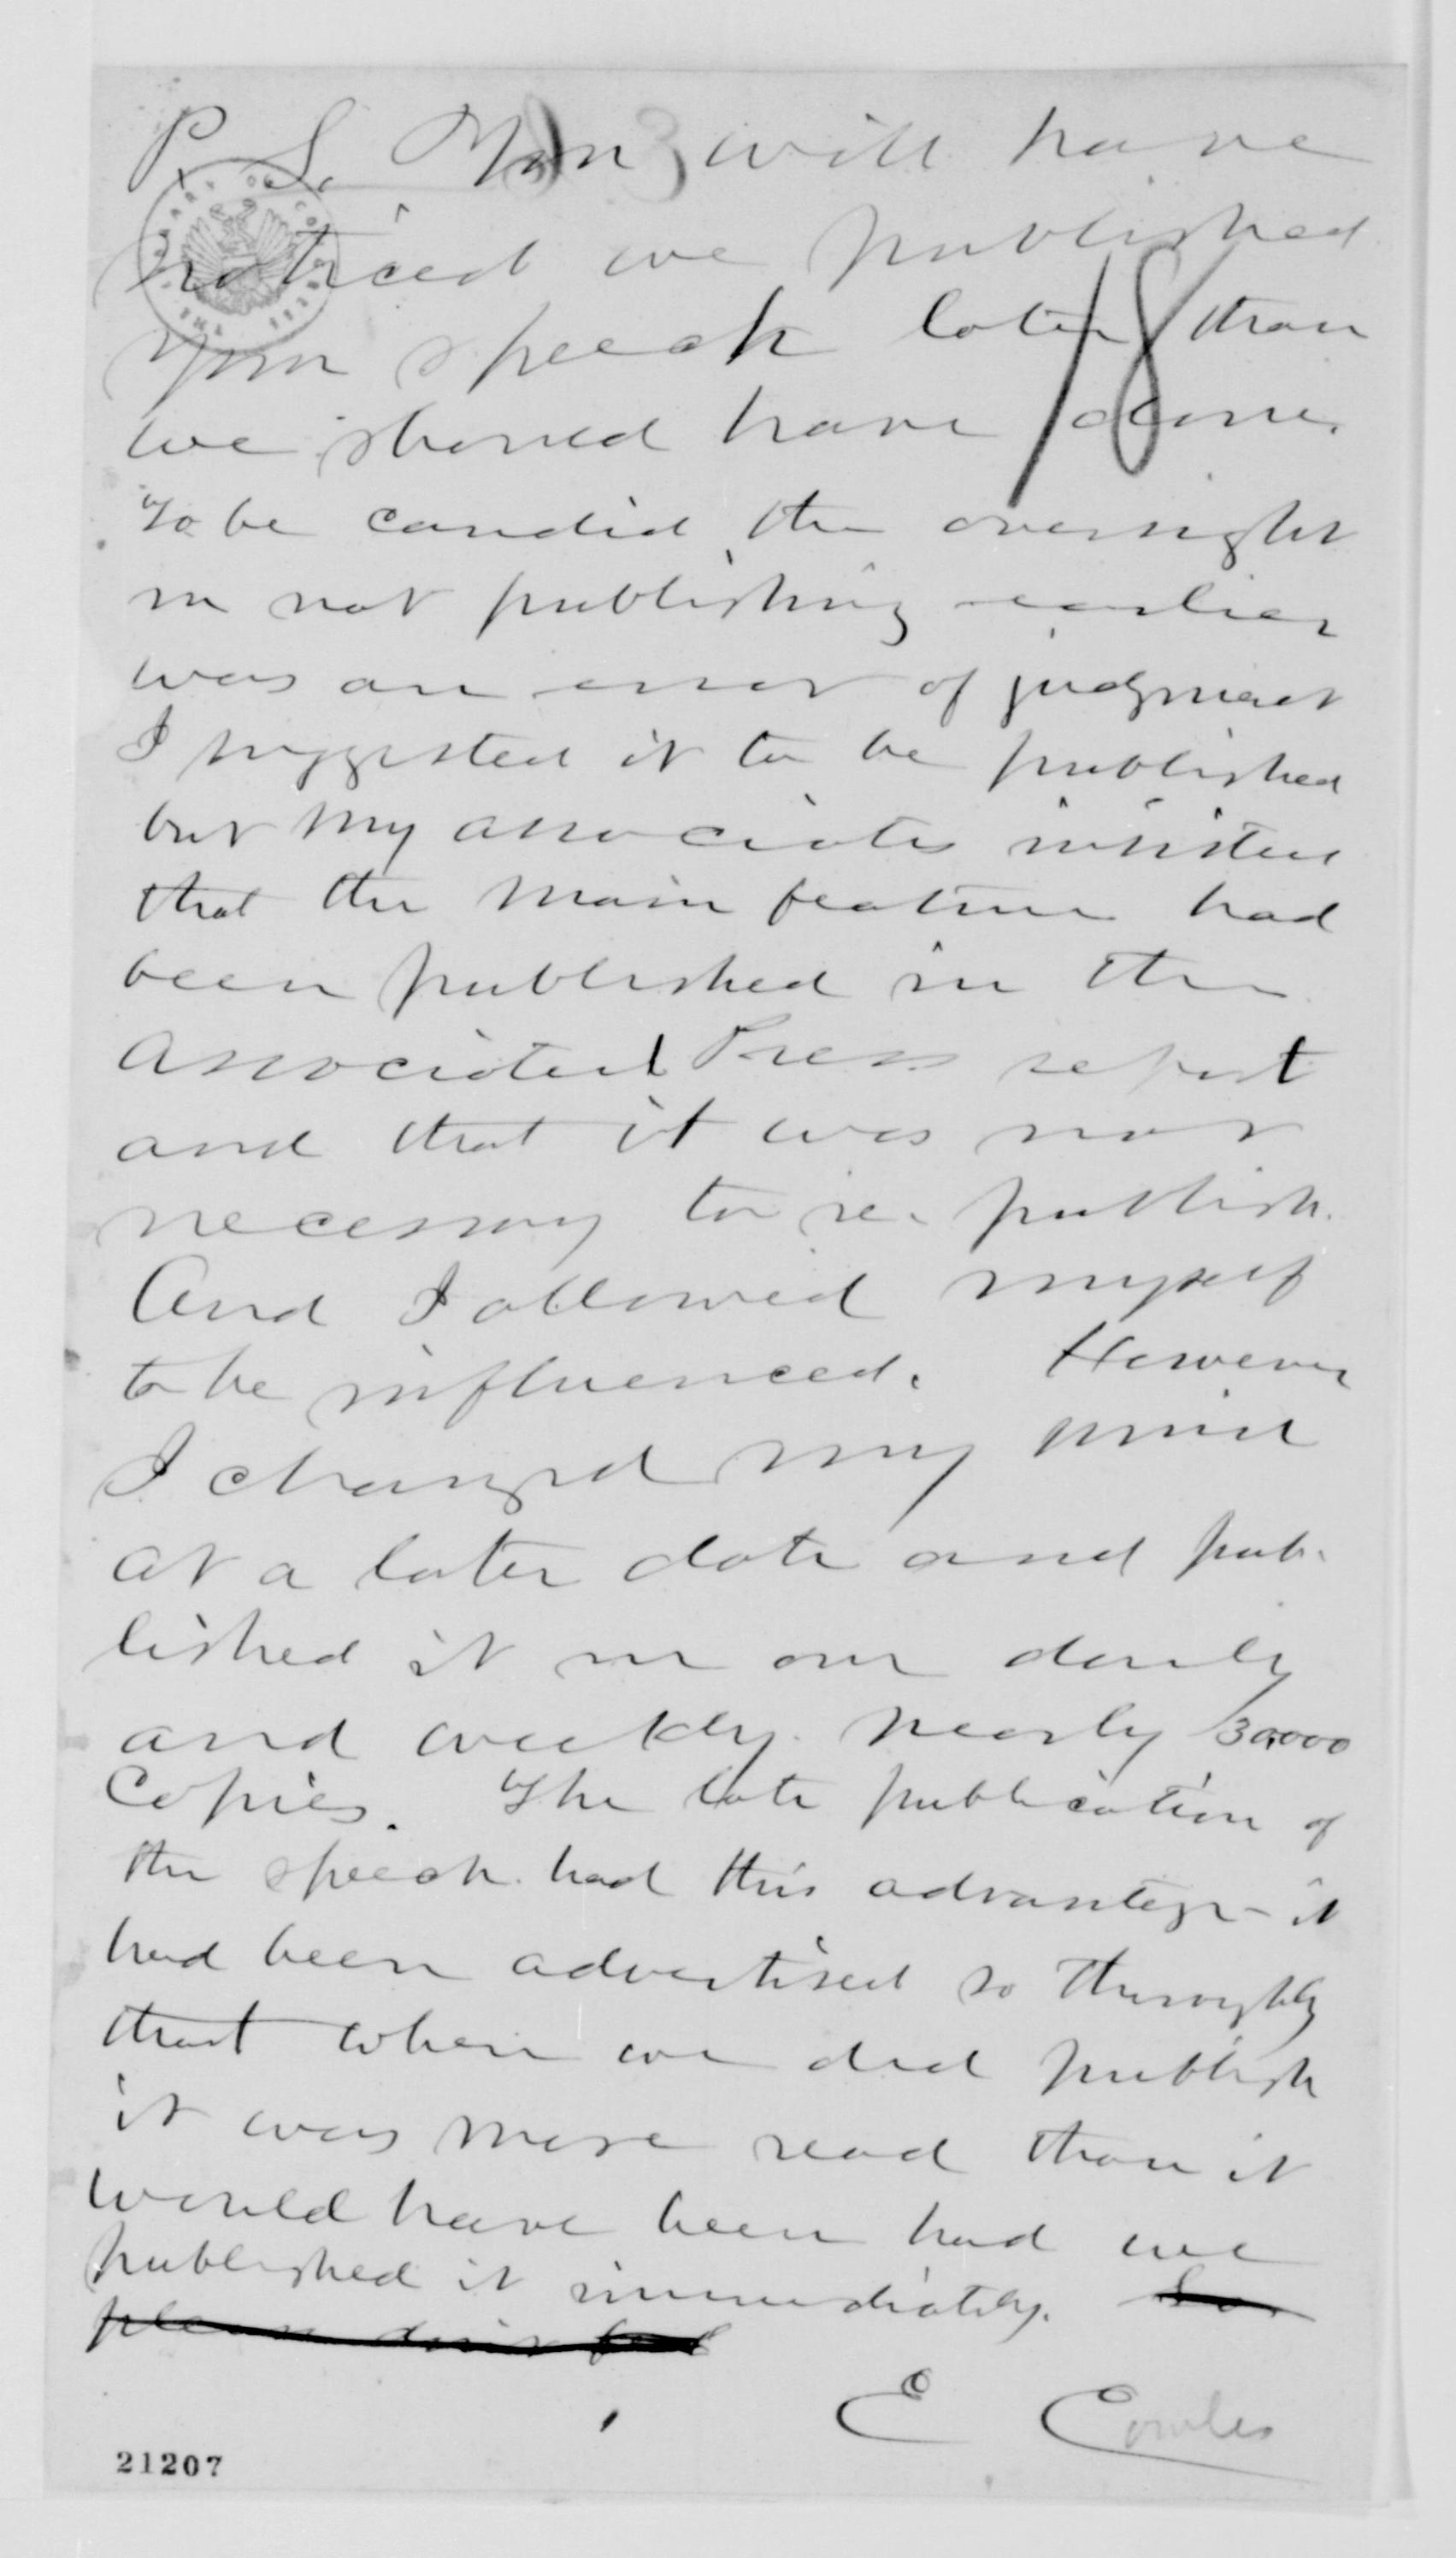 P. S. You will have
noticed we published
your speech later than
we should have done.
18
To be candid, the oversight
in not publishing earlier
was an error of judgment
I suggested it to be published
but my associates insisted
that the main feature had
been published in the
Associated Press report
and that it was not
necessary to re-publish.
And I allowed myself
to be influenced. However
I changed my mind
at a later date and pub-
lished it in our daily
and weekly. nearly 30,000
Copies. The late publication of
the speech had this advantage - it
had been advertised so thoroughly
that when we did publish
it was more read than it
would have been had we
published it immediately.
E Cowles
21207